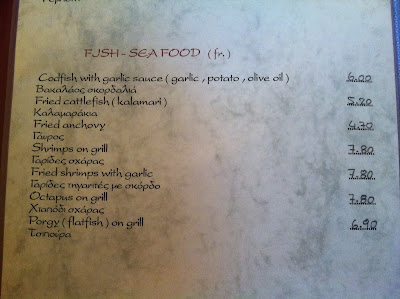 FISH - SEA FOOD (fr.)
Codfish with garlic sauce ( garlic , potato , olive oil ) 6.00
Βακαλάος σκορδαλιά
Fried cattlefish ( kalamari ) 5.20
Καλαμαράκια
Fried anchovy 4.70
Γαυρος
Shrimps on grill 7.80
Γαρίδες σχάρας
Fried shrimps with garlic 7.80
Γαρίδες τηγανιτές με σκόρδο
Octapus on grill 7.80
Χταπόδι σχάρας
Porgy ( flatfish ) on grill 6.90
Τσιπούρα